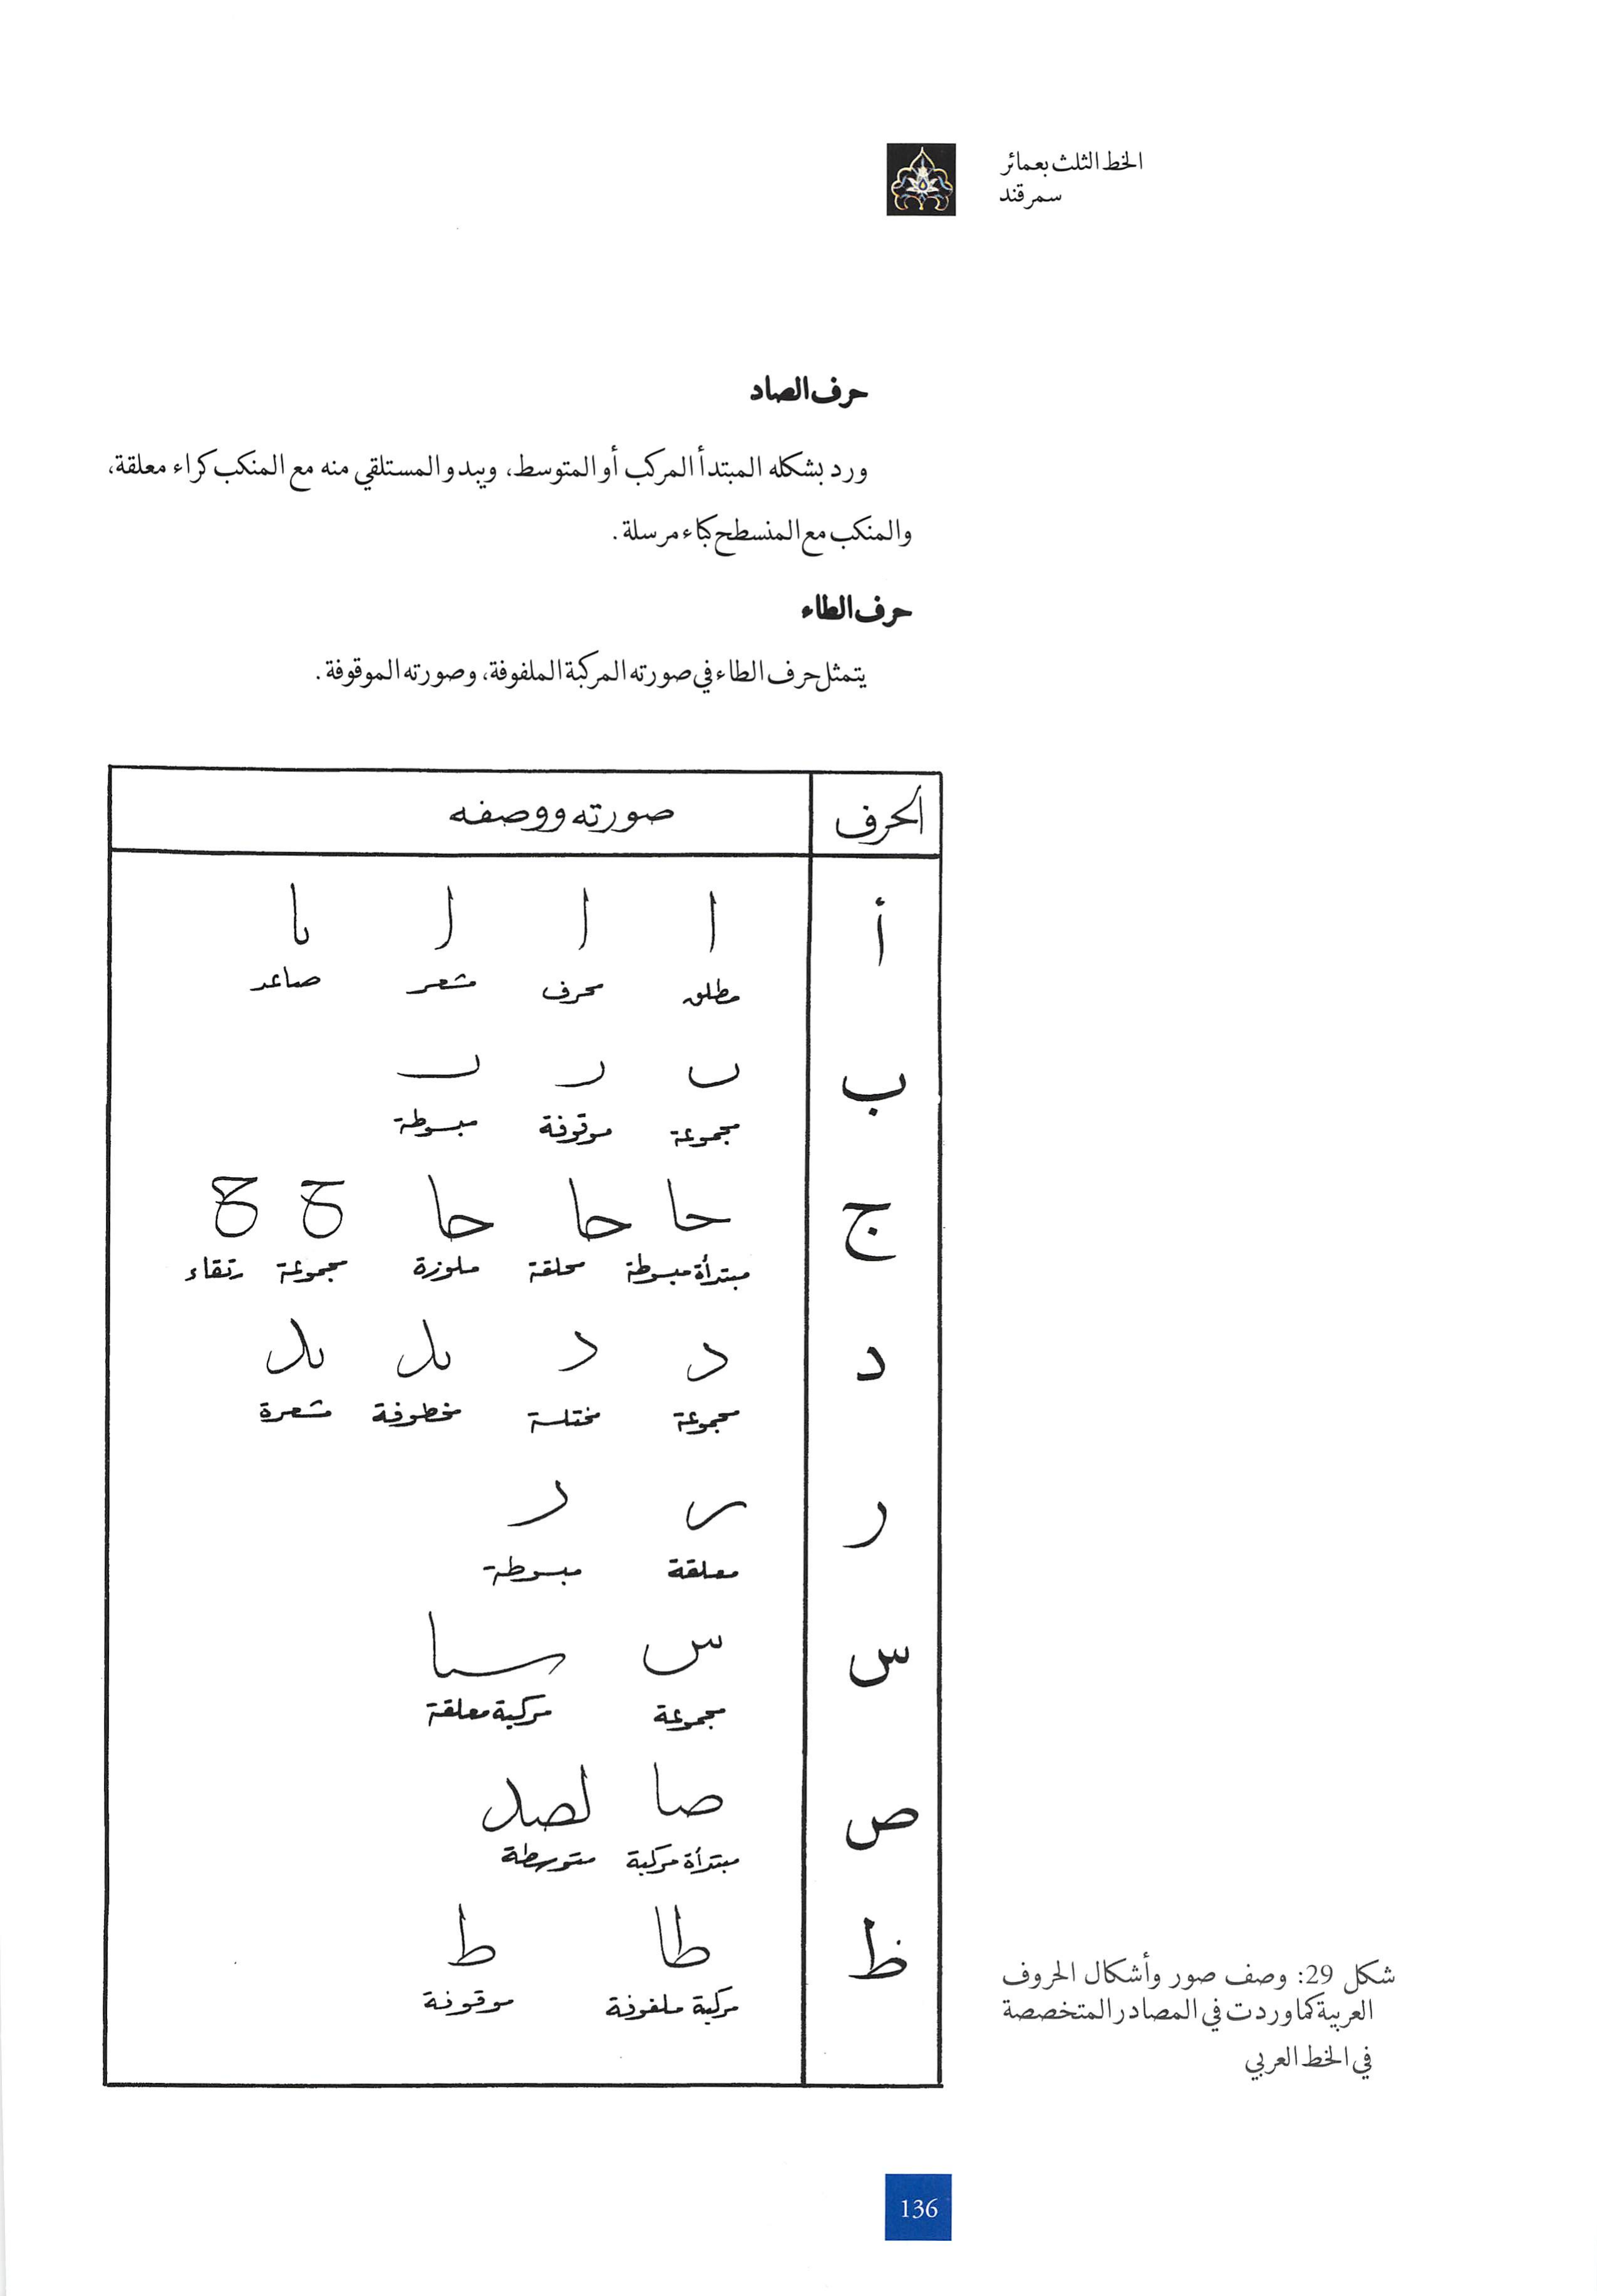 الخط الثلث بعمائر
سمرقند
حرف الصاد
ورد بشكله المبتدأ المركب أو المتوسط، ويبدو المستلقي منه مع المنكب كراء معلقة،
والمنكب مع المنسطح كباء مرسلة.
حرف الطاء
يتمثل حرف الطاء في صورته المركبة الملفوفة، وصورته الموقوفة.
الحرف صورته ووصفه
أ ا ا ا ـا
مطلق محرف مشعر صاعد
ب ٮ ٮ ٮ
مجموعة موقوفة مبسوطة
ج حا حا حا ح ح
مبتدأة مبسوطة محلقة ملوزة مجموعة رتقاء
د د د ـد ـد
مجموعة مختلسة مخطوفة مشعرة
ر ر ر
معلقة مبسوطة
س س سا
مجموعة مركبة معلقة
ص صا لصد
مبتدأة مركبة متوسطة
ظ طا ط
مركبة ملفوفة موقوفة
شكل 29: وصف صور وأشكال الحروف
العربية كما وردت في المصادر المتخصصة
في الخط العربي
136